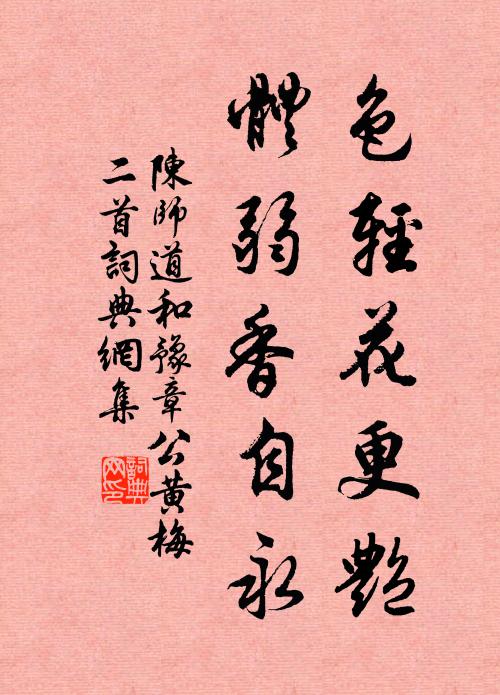 色輕花更艷
體弱香自永
陳師道和豫章公黃梅
二首詞典網集
詞典
网印